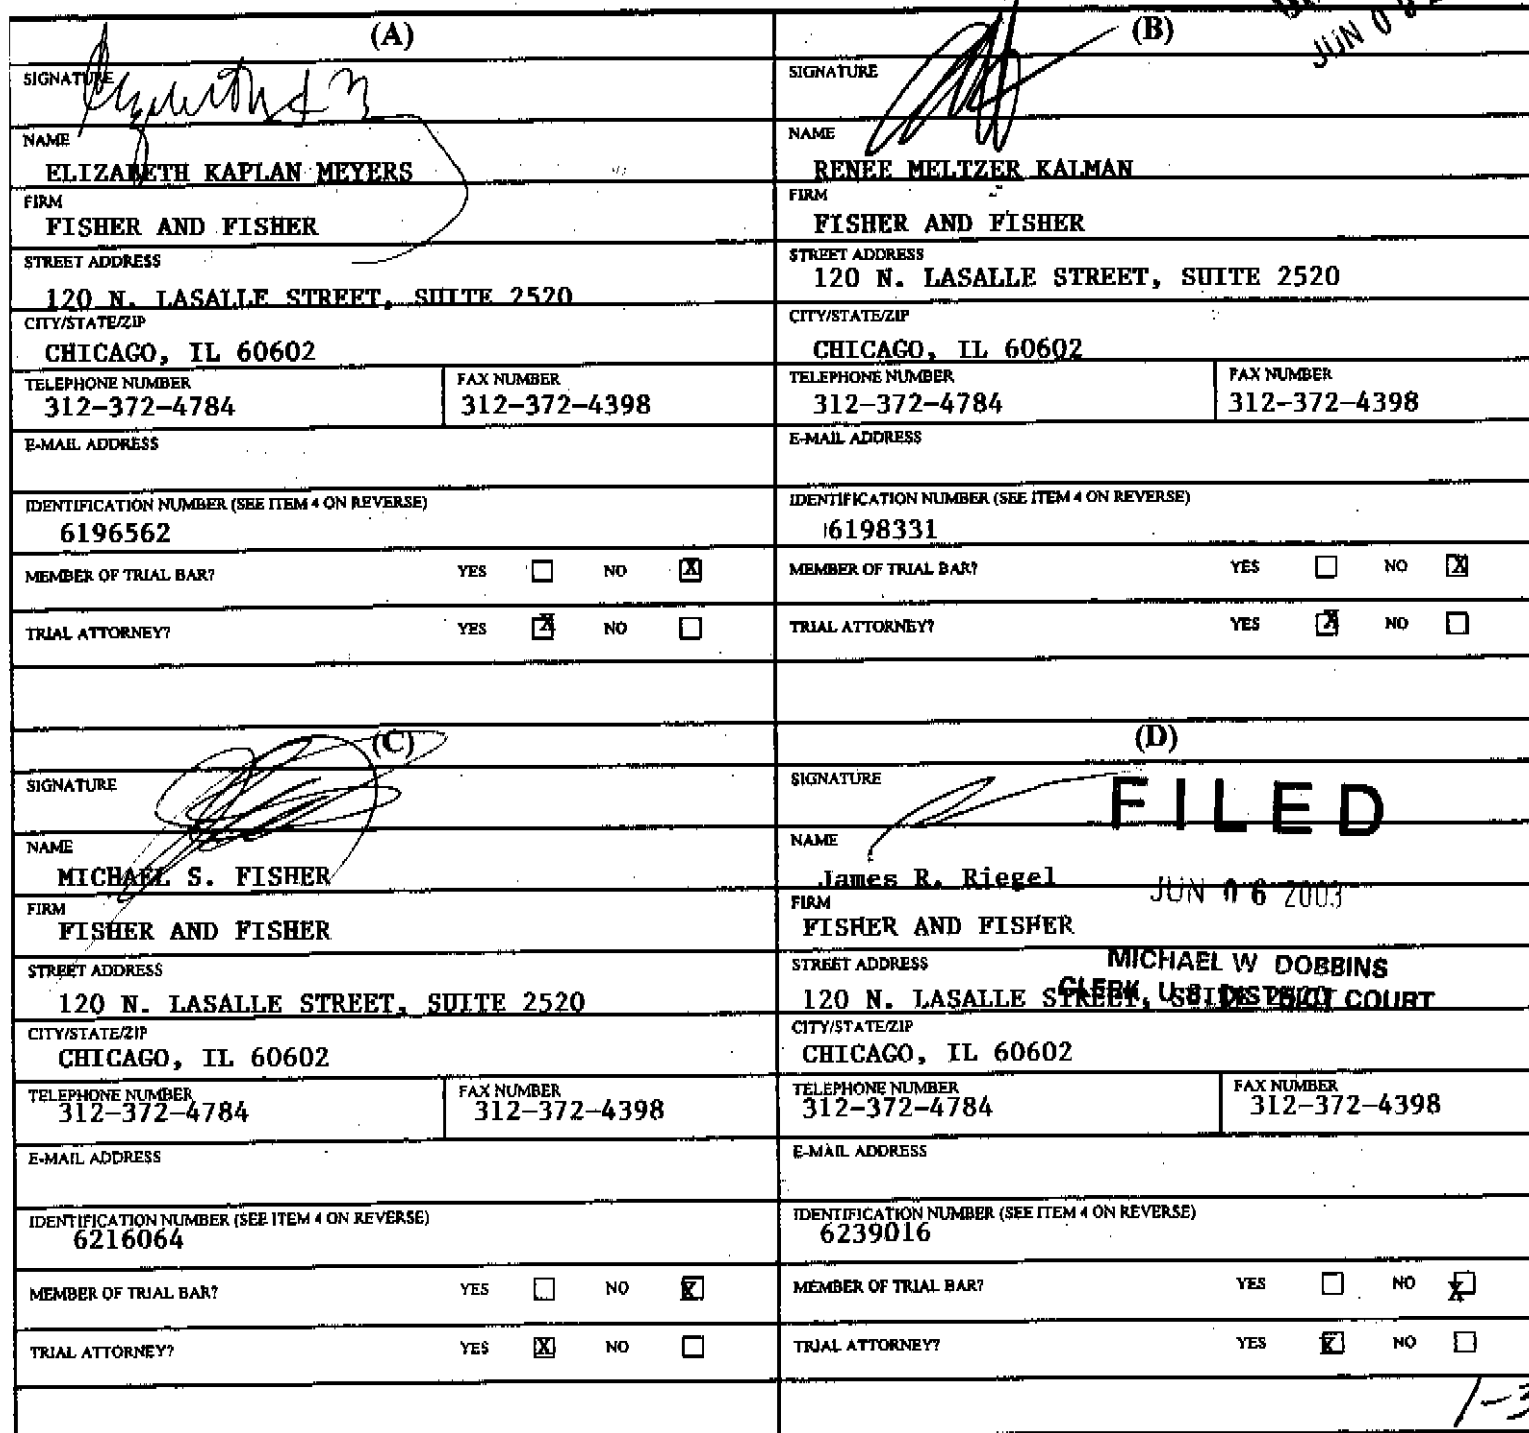 JUN 0
(A)
SIGNATURE
NAME
ELIZABETH KAPLAN MEYERS
FIRM
FISHER AND FISHER
STREET ADDRESS
120 N. LASALLE STREET, SUITE 2520
CITY/STATE/ZIP
CHICAGO, IL 60602
TELEPHONE NUMBER
312-372-4784
FAX NUMBER
312-372-4398
E-MAIL ADDRESS
IDENTIFICATION NUMBER (SEE ITEM 4 ON REVERSE)
6196562
MEMBER OF TRIAL BAR? YES NO X
TRIAL ATTORNEY? YES X NO
(B)
SIGNATURE
NAME
RENEE MELTZER KALMAN
FIRM
FISHER AND FISHER
STREET ADDRESS
120 N. LASALLE STREET, SUITE 2520
CITY/STATE/ZIP
CHICAGO, IL 60602
TELEPHONE NUMBER
312-372-4784
FAX NUMBER
312-372-4398
E-MAIL ADDRESS
IDENTIFICATION NUMBER (SEE ITEM 4 ON REVERSE)
6198331
MEMBER OF TRIAL BAR? YES NO X
TRIAL ATTORNEY? YES X NO
(C)
SIGNATURE
NAME
MICHAEL S. FISHER
FIRM
FISHER AND FISHER
STREET ADDRESS
120 N. LASALLE STREET, SUITE 2520
CITY/STATE/ZIP
CHICAGO, IL 60602
TELEPHONE NUMBER
312-372-4784
FAX NUMBER
312-372-4398
E-MAIL ADDRESS
IDENTIFICATION NUMBER (SEE ITEM 4 ON REVERSE)
6216064
MEMBER OF TRIAL BAR? YES NO X
TRIAL ATTORNEY? YES X NO
(D)
SIGNATURE
FILED
NAME
James R. Riegel
JUN 06 2003
FIRM
FISHER AND FISHER
STREET ADDRESS
MICHAEL W DOBBINS
CLERK, U.S. DISTRICT COURT
120 N. LASALLE STREET, SUITE 2520
CITY/STATE/ZIP
CHICAGO, IL 60602
TELEPHONE NUMBER
312-372-4784
FAX NUMBER
312-372-4398
E-MAIL ADDRESS
IDENTIFICATION NUMBER (SEE ITEM 4 ON REVERSE)
6239016
MEMBER OF TRIAL BAR? YES NO X
TRIAL ATTORNEY? YES X NO
1-3